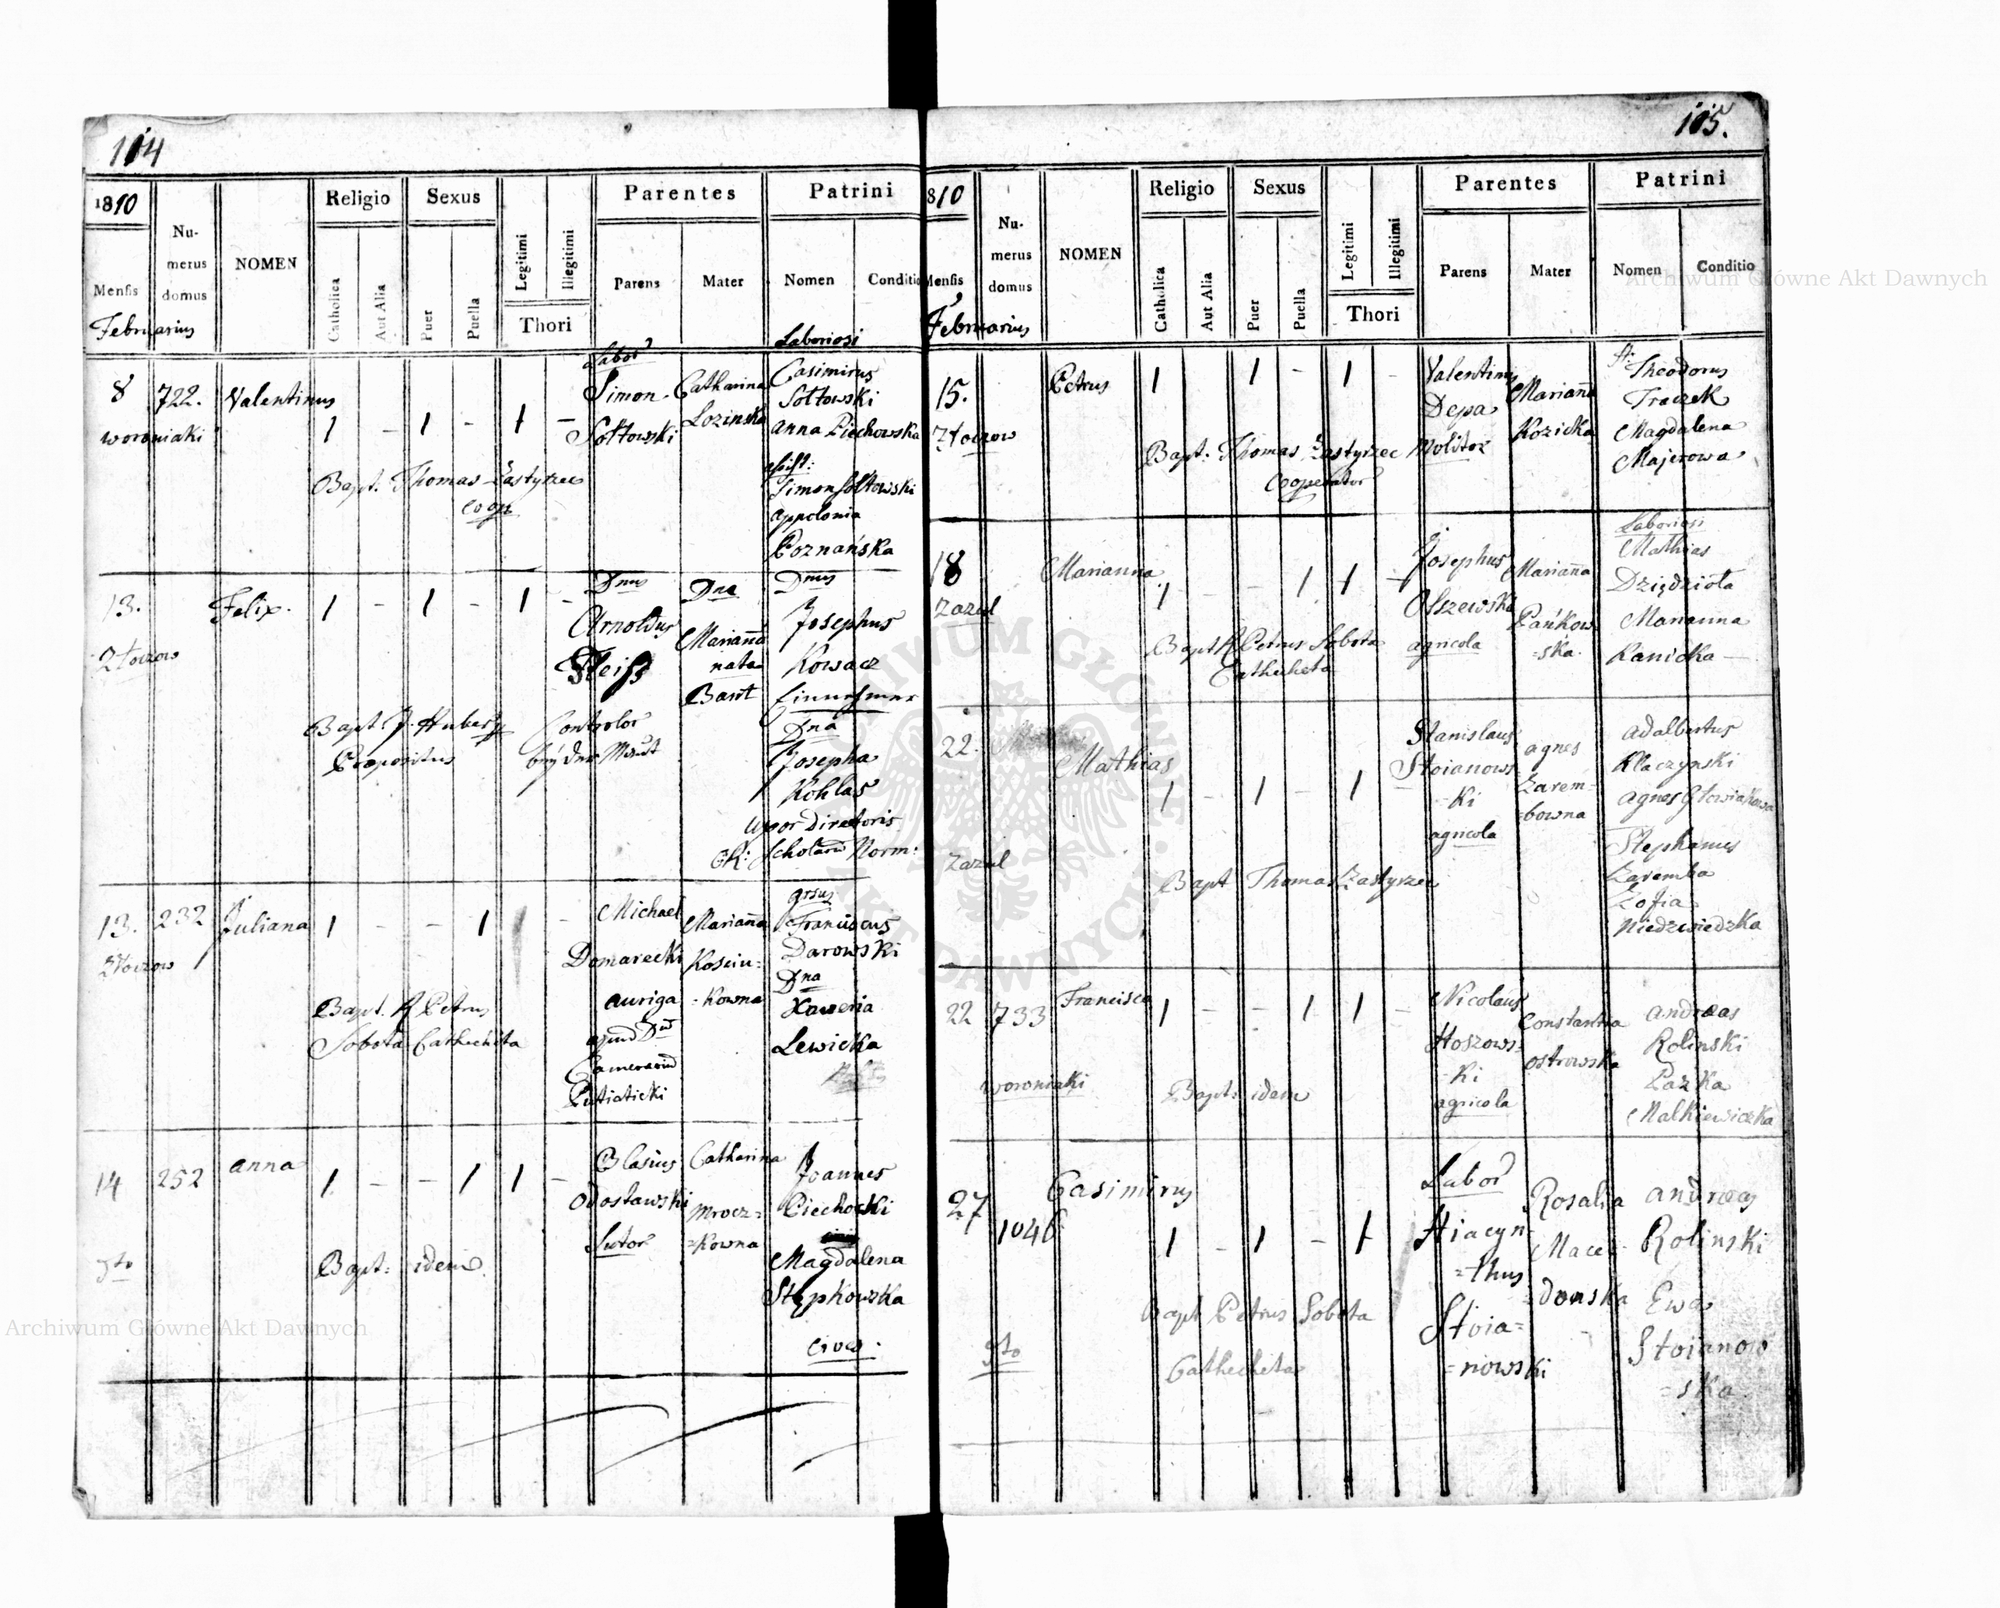 104
1810
Mensis
Februarius
Numerus
domus
NOMEN
Religio
Catholica
Aut Alia
Sexus
Puer
Puella
Legitimi
Illegitimi
Thori
Parentes
Parens
Mater
Patrini
Nomen
Conditio
8
722.
Woroniaki
Valentinus
1 - 1 - 1 -
Bapt. Thomas Zastyrzec
Coop
Labor
Simon
Sołtowski
Catharina
Lozinska
Laboriosi
Casimirus
Sołtowski
Anna Piechowska
assist:
Simon Sołtowski
Appolonia
Poznańska
13.
Złoczow
Felix.
1 - 1 - 1 -
Bapt. J. Hubert
Praepositus
Dnus
Arnoldus
Fleiss
Controlor
Dna
Marianna
nata
Dnus
Josephus
Kowacz
Dna
Josepha
Kohlas
uxor directoris
Scholarum Norm:
13.
232
Złoczow
Juliana
1 - - 1
Bapt. Petrus
Sobota Cathechita
Michael
Domarecki
auriga
apud
Marianna
Kosciu-
-kowna
Franciscus
Darowski
Dna
Xaweria
Lewicka
14
252
Anna
1 - - 1 1 -
Bapt: idem
Blasius
Odosławski
Sutor
Catharina
Mrocz=
=kowna
Joannes
Ciechoski
Magdalena
Stępkowska
cives.
105.
1810
Mensis
Februarius
Numerus
domus
NOMEN
Religio
Catholica
Aut Alia
Sexus
Puer
Puella
Legitimi
Illegitimi
Thori
Parentes
Parens
Mater
Patrini
Nomen
Conditio
15.
Złoczow
Petrus
1 1 - 1 -
Bapt. Thomas Zastyrzec
Cooperator
Valentinus
Depa
Molitor
Marianna
Kozicka
Theodorus
Traczek
Magdalena
Majerowa
18
Zazul
Marianna
1 - - 1 1 -
Bapt R Petrus Sobota
Catheheta
Josephus
Olszewski
agricola
Marianna
Pańkow
=ska.
Laboriosi
Mathias
Dzięzioła
Marianna
Kanicka
22.
Mathias
1 - 1 - 1
Zazul
Bapt Thomas Zastyrzec
Stanislaus
Stoianows
-ki
agricola
Agnes
Zarem-
-bowna
Adalbertus
Klaczynski
Agnes
Stephanus
Zaremba
Zofia
Niedzwiedzka
22
733
Woroniaki
Francisca
1 - - 1 1 -
Bapt: idem
Nicolaus
Hoszows-
-ki
agricola
Constantia
Ostrowska
Andreas
Rolinski
Pazka
Malkiewiczka
27
1046
Casimirus
1 - 1 - 1
Bapt Petrus Sobota
Catheheta
Labor
Hiacyn-
=thus
Stoia=
=nowski
Rosalia
Mace-
=donska
Andreas
Rolinski
Ewa
Stoianow
=ska
Archiwum Główne Akt Dawnych
Archiwum Główne Akt Dawnych
ARCHIWUM GŁÓWNE AKT DAWNYCH